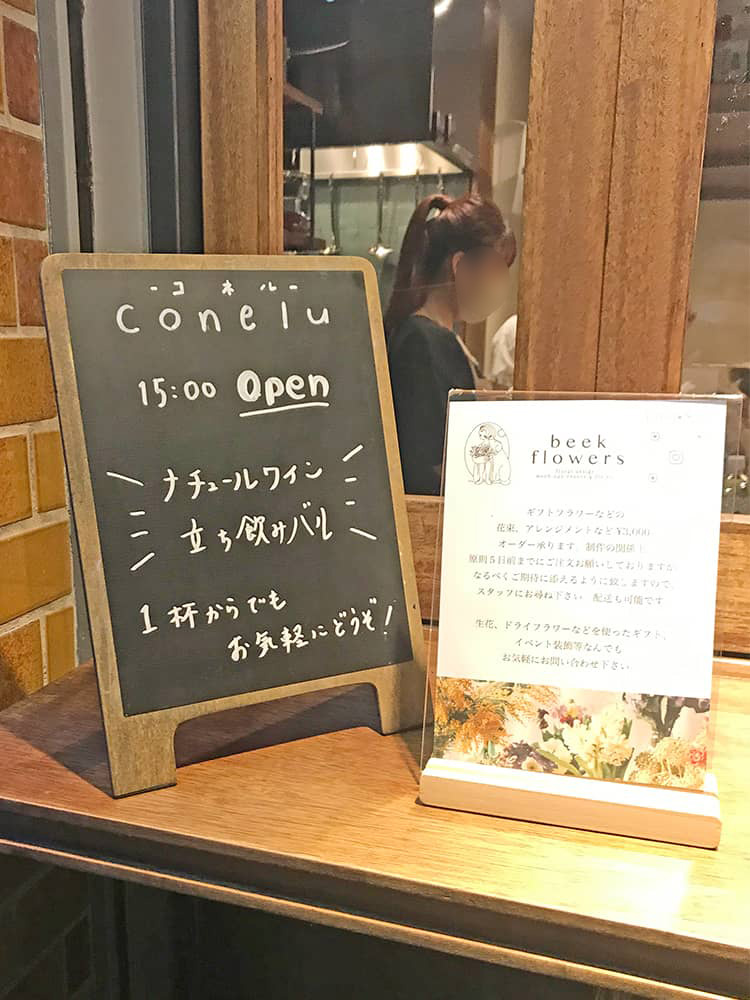 -コネル-
conelu
15:00 Open
ナチュールワイン
立ち飲みバル
1杯からでも
お気軽にどうぞ!
beek
flowers
ギフトフラワーなどの
花束、アレンジメントなど¥3,000
オーダー承ります。制作の関係上
原則5日前までにご注文お願いしておりますが
なるべくご期待に添えるように致しますので、
スタッフにお尋ね下さい 配送も可能です
生花、ドライフラワーなどを使ったギフト、
イベント装飾等なんでも
お気軽にお問い合わせ下さい